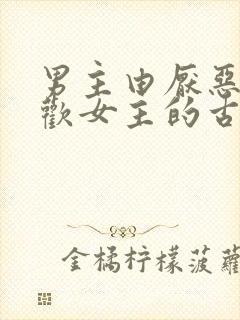 男主由厭惡
歡女主的古
金橘柠檬菠蘿